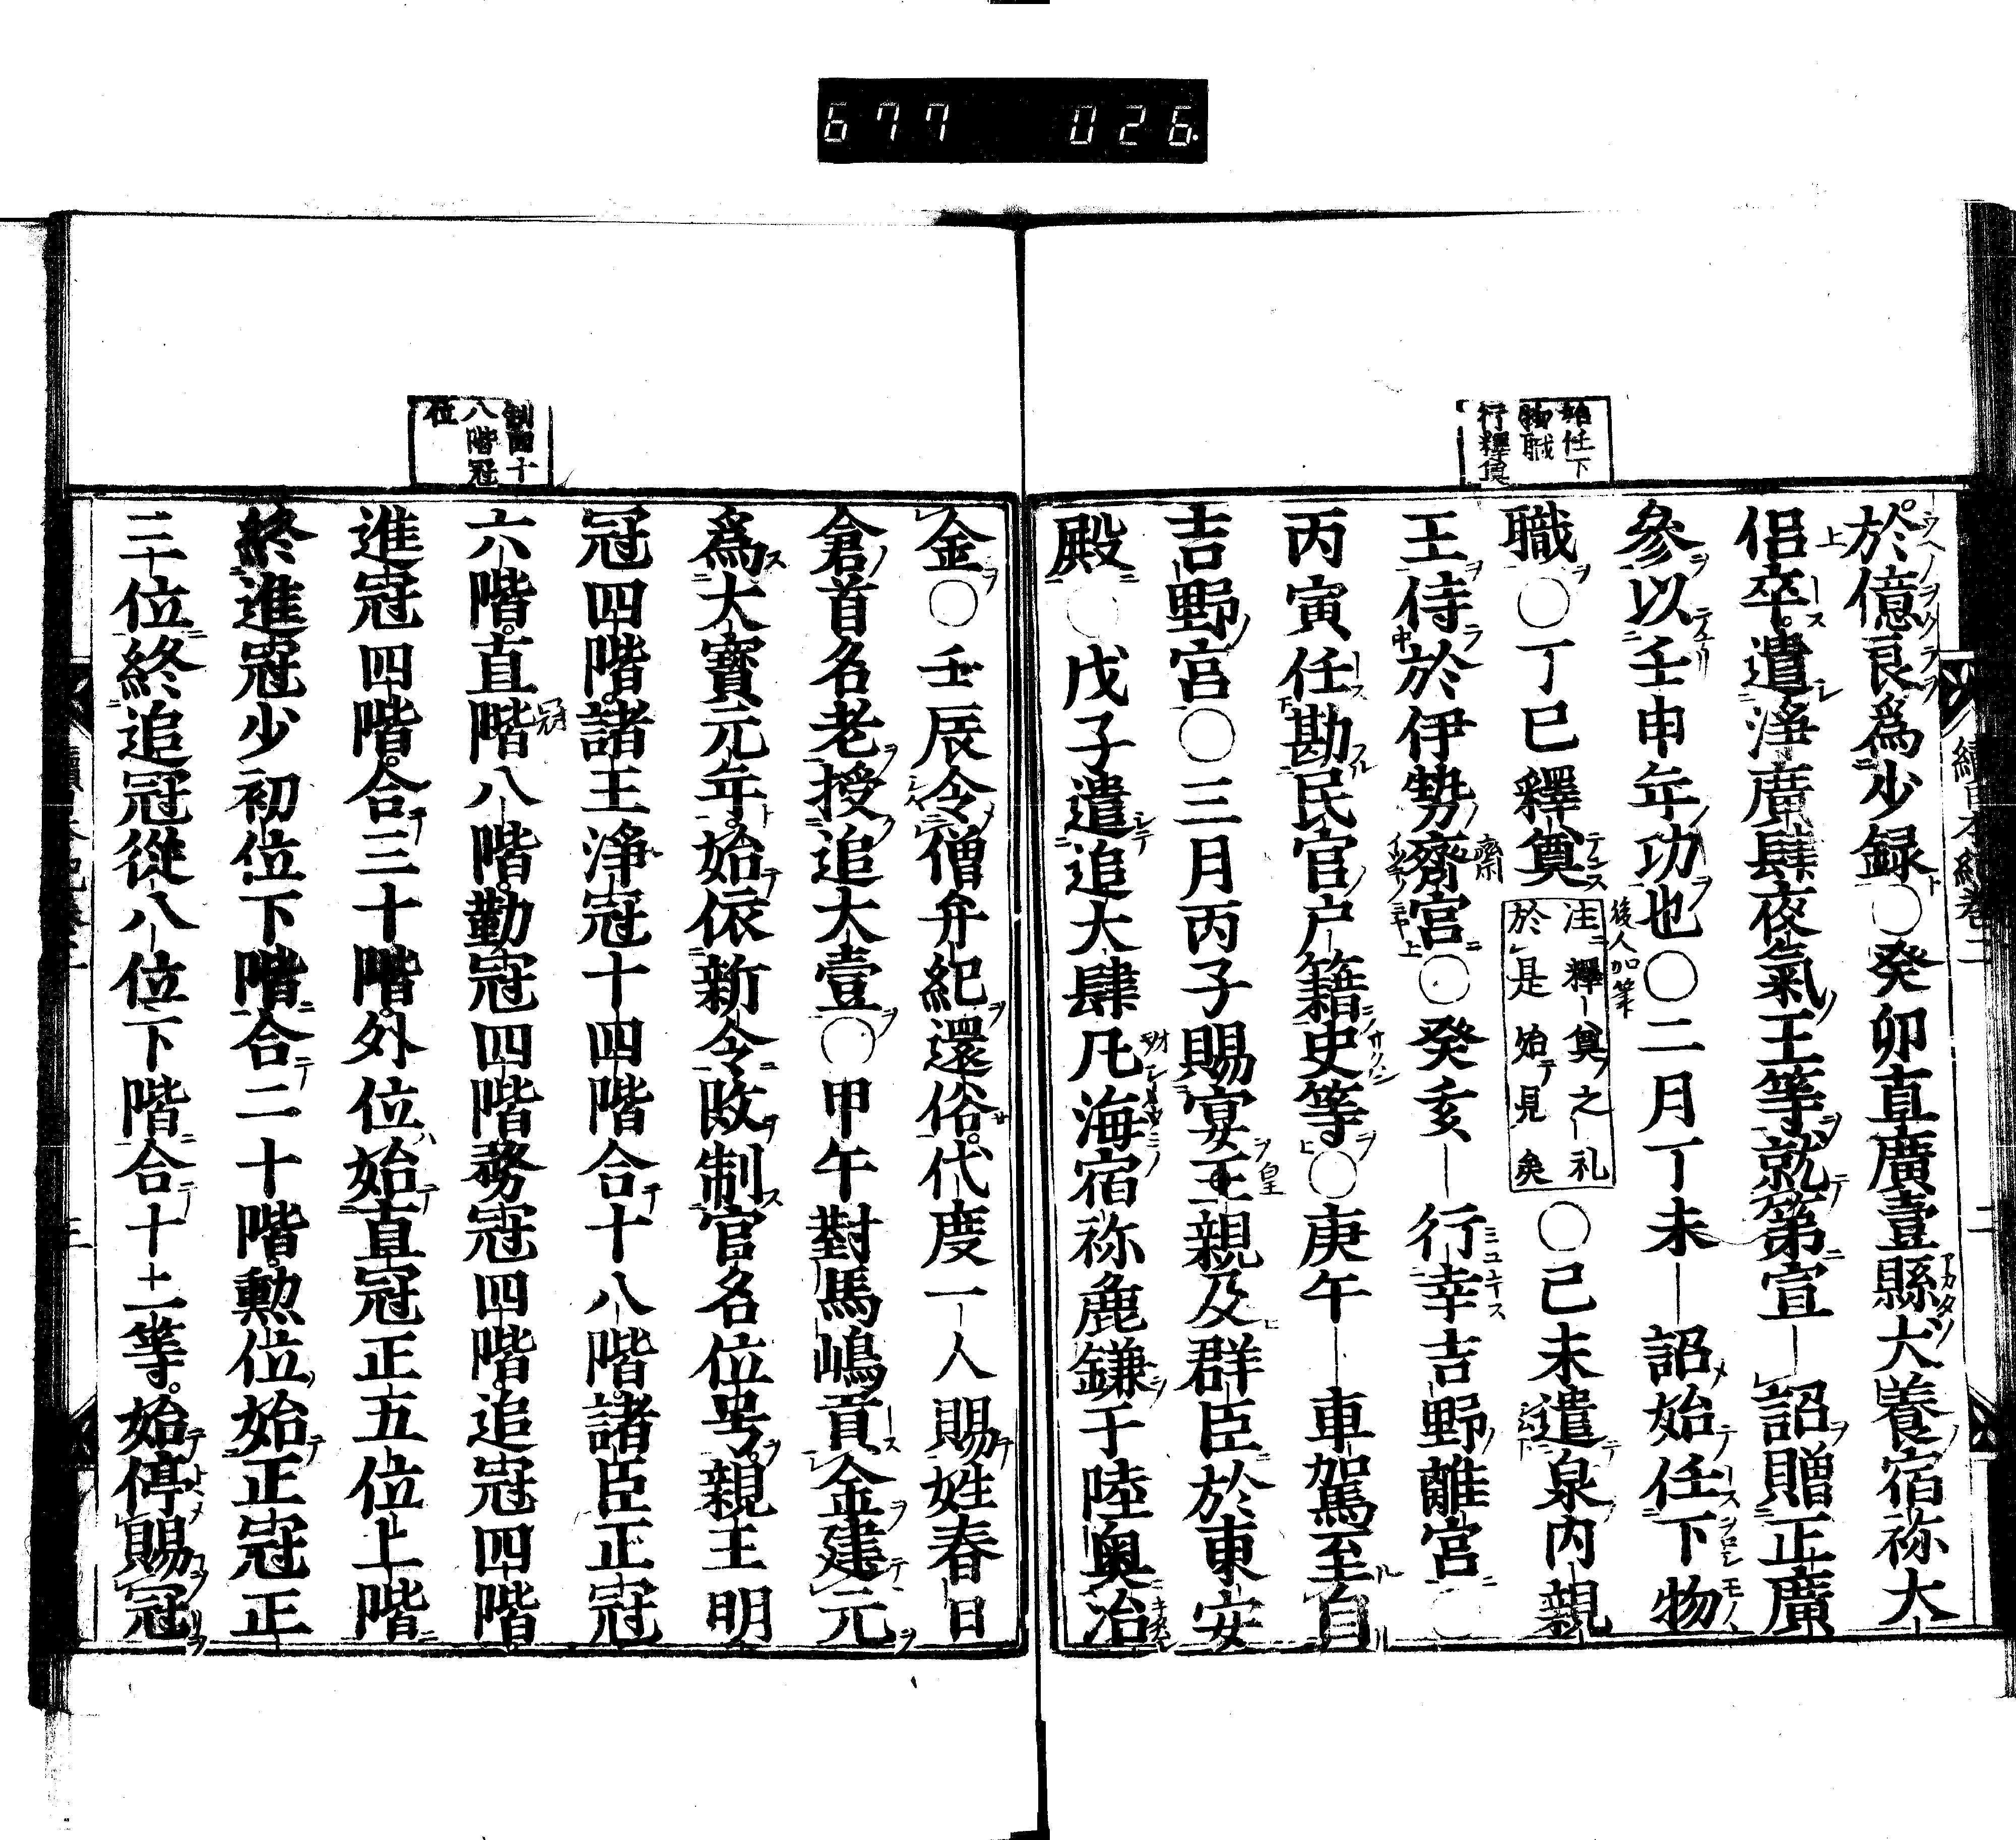 677 026
始任下
物職
行釋奠
於億良爲少録○癸卯直廣壹縣犬養宿祢大
侶卒。遣淨廣肆夜氣王等就第宣詔贈正廣
參以壬申年功也○二月丁未詔始任下物
職○丁巳釋奠
後人加筆
注釋奠之礼
於是始見矣
○己未遣泉内親
王侍於伊勢齋宮○癸亥行幸吉野離宮○
丙寅任勘民官戸籍史等○庚午車駕至自
吉野宮○三月丙子賜宴王親及群臣於東安
皇
殿○戊子遣追大肆凡海宿祢麁鎌于陸奥冶
制四十
八階冠
位
金○壬辰令僧弁紀還俗。代度一人賜姓春日
倉首名老授追大壹○甲午對馬嶋貢金建元
爲大寶元年。始依新令改制官名位号。親王明
冠四階。諸王淨冠十四階合十八階。諸臣正冠
六階。直階八階。勤冠四階務冠四階。追冠四階
冠
進冠四階。合三十階。外位始直冠正五位上階
終進冠少初位下階合二十階。勲位始正冠正
三位終追冠從八位下階合十二等。始停賜冠